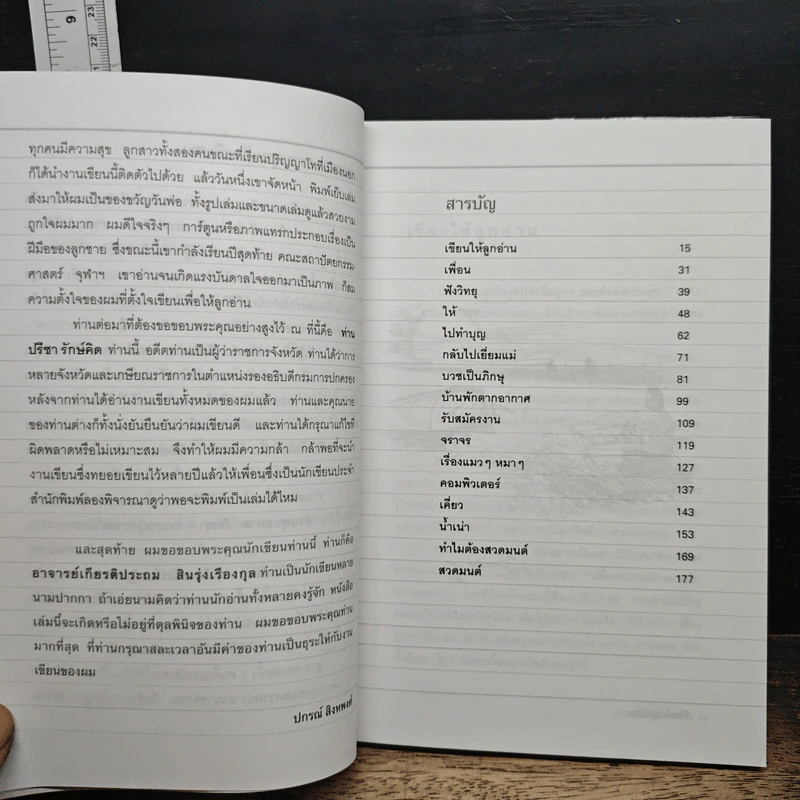 9
23
22
21
ทุกคนมีความสุข ลูกสาวทั้งสองคนขณะที่เรียนปริญญาโทที่เมืองนอก
ก็ได้นำงานเขียนนี้ติดตัวไปด้วย แล้ววันหนึ่งเขาจัดหน้า พิมพ์เย็บเล่ม
ส่งมาให้ผมเป็นของขวัญวันพ่อ ทั้งรูปเล่มและขนาดเล่มดูแล้วสวยงาม
ถูกใจผมมาก ผมดีใจจริงๆ การ์ตูนหรือภาพแทรกประกอบเรื่องเป็น
ฝีมือของลูกชาย ซึ่งขณะนี้เขากำลังเรียนปีสุดท้าย คณะสถาปัตยกรรม-
ศาสตร์ จุฬาฯ เขาอ่านจนเกิดแรงบันดาลใจออกมาเป็นภาพ ก็สม
ความตั้งใจของผมที่ตั้งใจเขียนเพื่อให้ลูกอ่าน
ท่านต่อมาที่ต้องขอขอบพระคุณอย่างสูงไว้ ณ ที่นี้คือ ท่าน
ปรีชา รักษ์คิด ท่านนี้ อดีตท่านเป็นผู้ว่าราชการจังหวัด ท่านได้ว่าการ
หลายจังหวัดและเกษียณราชการในตำแหน่งรองอธิบดีกรมการปกครอง
หลังจากท่านได้อ่านงานเขียนทั้งหมดของผมแล้ว ท่านและคุณนาย
ของท่านต่างก็ทั้งนั่งยันยืนยันว่าผมเขียนดี และท่านได้กรุณาแก้ไขที่
ผิดพลาดหรือไม่เหมาะสม จึงทำให้ผมมีความกล้า กล้าพอที่จะนำ
งานเขียนซึ่งทยอยเขียนไว้หลายปีแล้วให้เพื่อนซึ่งเป็นนักเขียนประจำ
สำนักพิมพ์ลองพิจารณาดูว่าพอจะพิมพ์เป็นเล่มได้ไหม
และสุดท้าย ผมขอขอบพระคุณนักเขียนท่านนี้ ท่านก็คือ
อาจารย์เกียรติประถม สินรุ่งเรืองกุล ท่านเป็นนักเขียนหลาย
นามปากกา ถ้าเอ่ยนามคิดว่าท่านนักอ่านทั้งหลายคงรู้จัก หนังสือ
เล่มนี้จะเกิดหรือไม่อยู่ที่ดุลพินิจของท่าน ผมขอขอบพระคุณท่าน
มากที่สุด ที่ท่านกรุณาสละเวลาอันมีค่าของท่านเป็นธุระให้กับงาน
เขียนของผม
ปกรณ์ สิงหพงศ์
สารบัญ
เขียนให้ลูกอ่าน 15
เพื่อน 31
ฟังวิทยุ 39
ให้ 48
ไปทำบุญ 62
กลับไปเยี่ยมแม่ 71
บวชเป็นภิกษุ 81
บ้านพักตากอากาศ 99
รับสมัครงาน 109
จราจร 119
เรื่องแมวๆ หมาๆ 127
คอมพิวเตอร์ 137
เคี่ยว 143
น้ำเน่า 153
ทำไมต้องสวดมนต์ 169
สวดมนต์ 177